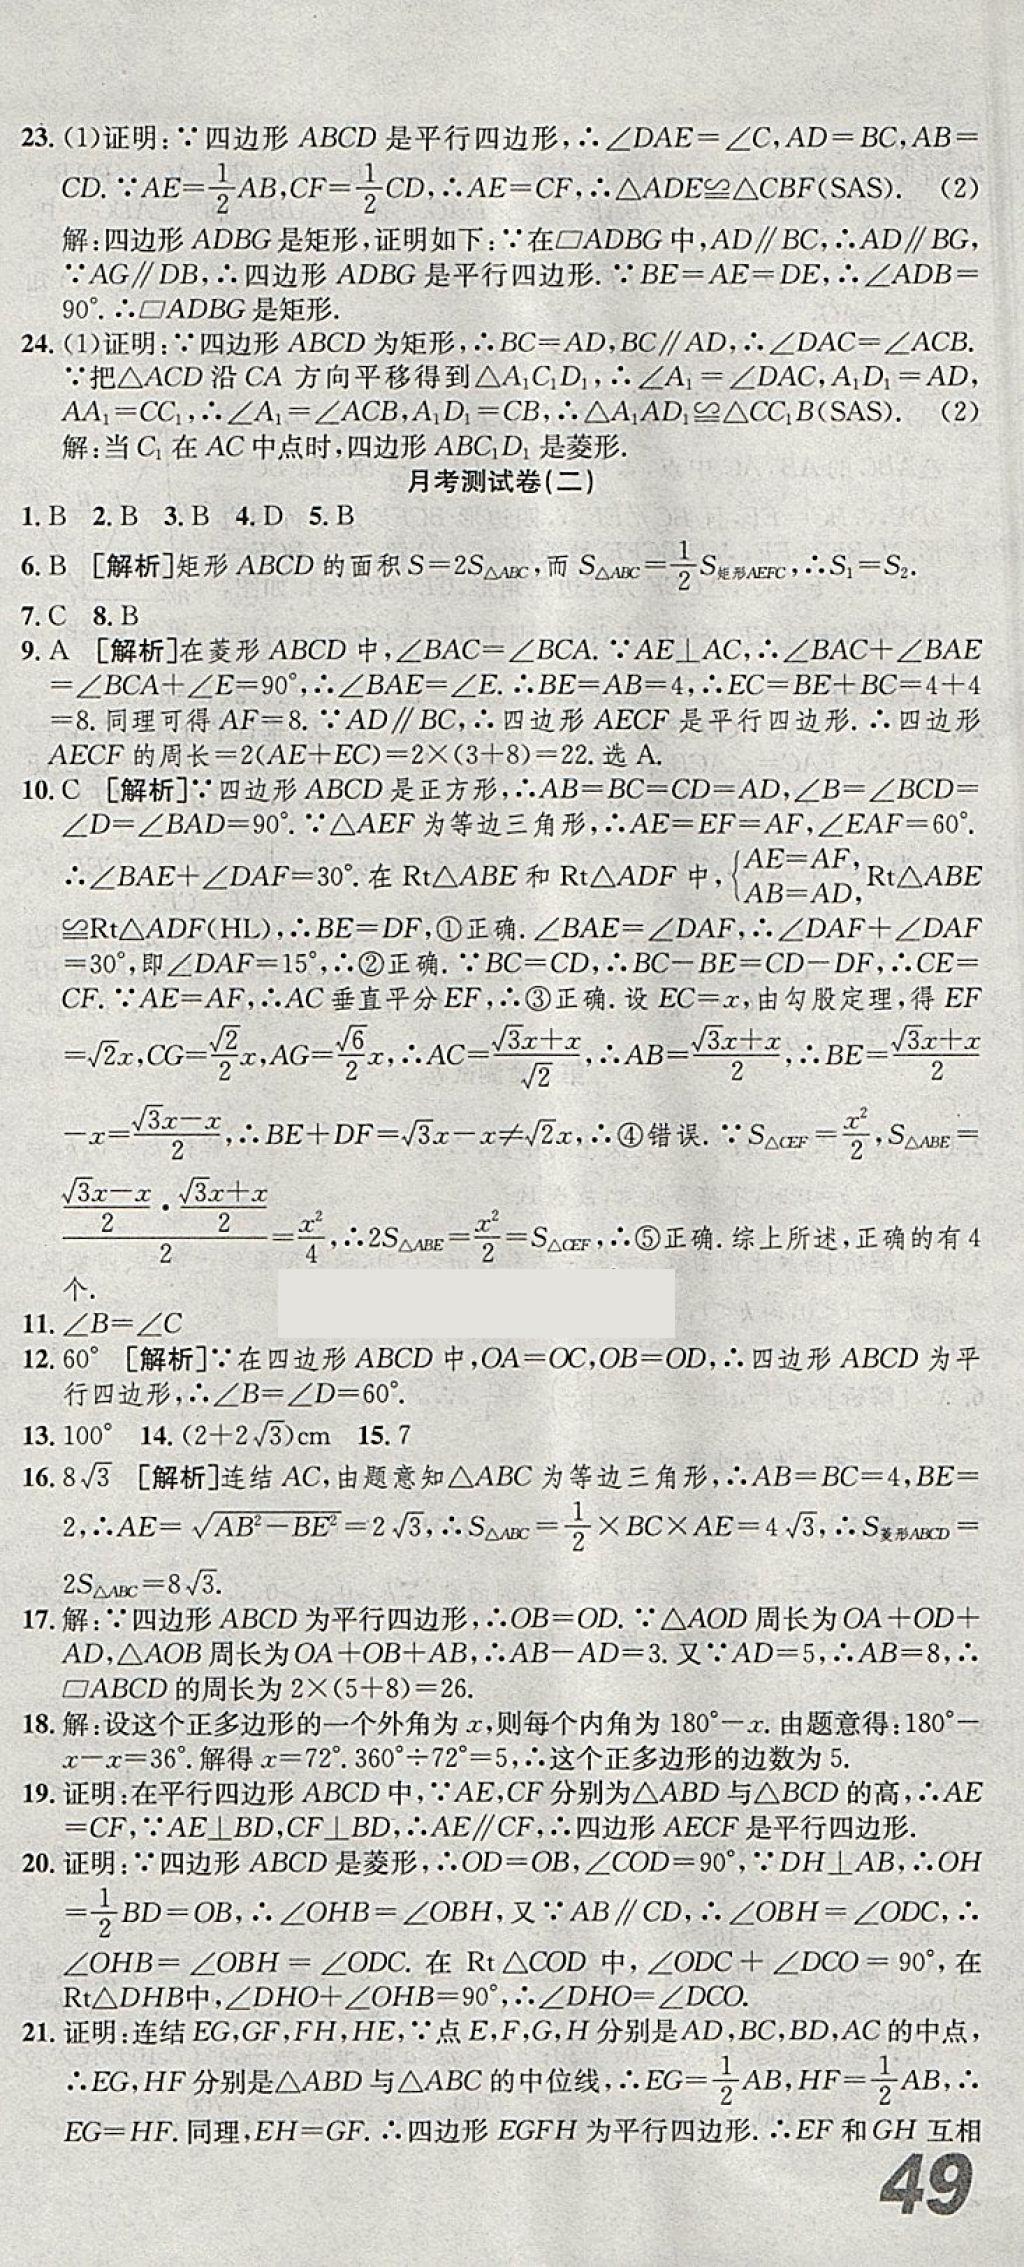 23. (1)证明:∵四边形 ABCD 是平行四边形,∴∠DAE=∠C,AD=BC,AB=
CD.∵AE=1/2AB,CF=1/2CD,∴AE=CF,∴△ADE≌△CBF(SAS). (2)
解:四边形 ADBG 是矩形,证明如下:∵在▱ADBG 中,AD∥BC,∴AD∥BG,
∵AG∥DB,∴四边形 ADBG 是平行四边形.∵BE=AE=DE,∴∠ADB=
90°.∴▱ADBG 是矩形.
24. (1)证明:∵四边形 ABCD 为矩形,∴BC=AD,BC∥AD,∴∠DAC=∠ACB.
∵把△ACD 沿 CA 方向平移得到△A₁C₁D₁,∴∠A₁=∠DAC,A₁D₁=AD,
AA₁=CC₁,∴∠A₁=∠ACB,A₁D₁=CB,∴△A₁AD₁≌△CC₁B(SAS). (2)
解:当 C₁ 在 AC 中点时,四边形 ABC₁D₁ 是菱形.
月考测试卷(二)
1. B 2. B 3. B 4. D 5. B
6. B [解析]矩形 ABCD 的面积 S=2S△ABC,而 S△ABC=1/2S矩形AEFC,∴S₁=S₂.
7. C 8. B
9. A [解析]在菱形 ABCD 中,∠BAC=∠BCA.∵AE⊥AC,∴∠BAC+∠BAE
=∠BCA+∠E=90°,∴∠BAE=∠E.∴BE=AB=4,∴EC=BE+BC=4+4
=8.同理可得 AF=8.∵AD∥BC,∴四边形 AECF 是平行四边形.∴四边形
AECF 的周长=2(AE+EC)=2×(3+8)=22.选 A.
10. C [解析]∵四边形 ABCD 是正方形,∴AB=BC=CD=AD,∠B=∠BCD=
∠D=∠BAD=90°.∵△AEF 为等边三角形,∴AE=EF=AF,∠EAF=60°.
∴∠BAE+∠DAF=30°.在 Rt△ABE 和 Rt△ADF 中,{AE=AF, AB=AD, Rt△ABE
≌Rt△ADF(HL),∴BE=DF,①正确.∠BAE=∠DAF,∴∠DAF+∠DAF
=30°,即∠DAF=15°,∴②正确.∵BC=CD,∴BC-BE=CD-DF,∴CE=
CF.∵AE=AF,∴AC 垂直平分 EF,∴③正确.设 EC=x,由勾股定理,得 EF
=√2x,CG=√2/2x,AG=√6/2x,∴AC=(√3x+x)/√2,∴AB=(√3x+x)/2,∴BE=(√3x+x)/2
-x=(√3x-x)/2,∴BE+DF=√3x-x≠√2x,∴④错误.∵S△CEF=x²/2,S△ABE=
((√3x-x)/2·(√3x+x)/2)/2=x²/4,∴2S△ABE=x²/2=S△CEF,∴⑤正确.综上所述,正确的有4
个.
11. ∠B=∠C
12. 60° [解析]∵在四边形 ABCD 中,OA=OC,OB=OD,∴四边形 ABCD 为平
行四边形,∴∠B=∠D=60°.
13. 100° 14. (2+2√3)cm 15. 7
16. 8√3 [解析]连结 AC,由题意知△ABC 为等边三角形,∴AB=BC=4,BE=
2,∴AE=√(AB²-BE²)=2√3,∴S△ABC=1/2×BC×AE=4√3,∴S菱形ABCD=
2S△ABC=8√3.
17. 解:∵四边形 ABCD 为平行四边形,∴OB=OD.∵△AOD 周长为 OA+OD+
AD,△AOB 周长为 OA+OB+AB,∴AB-AD=3.又∵AD=5,∴AB=8,∴
▱ABCD 的周长为 2×(5+8)=26.
18. 解:设这个正多边形的一个外角为 x,则每个内角为 180°-x.由题意得:180°-
x-x=36°.解得 x=72°.360°÷72°=5,∴这个正多边形的边数为 5.
19. 证明:在平行四边形 ABCD 中,∵AE,CF 分别为△ABD 与△BCD 的高,∴AE
=CF,∵AE⊥BD,CF⊥BD,∴AE∥CF,∴四边形 AECF 是平行四边形.
20. 证明:∵四边形 ABCD 是菱形,∴OD=OB,∠COD=90°,∵DH⊥AB,∴OH
=1/2BD=OB,∴∠OHB=∠OBH,又∵AB∥CD,∴∠OBH=∠ODC,∴
∠OHB=∠OBH=∠ODC.在 Rt△COD 中,∠ODC+∠DCO=90°,在
Rt△DHB中,∠DHO+∠OHB=90°,∴∠DHO=∠DCO.
21. 证明:连结 EG,GF,FH,HE,∵点 E,F,G,H 分别是 AD,BC,BD,AC 的中点,
∴EG,HF 分别是△ABD 与△ABC 的中位线,∴EG=1/2AB,HF=1/2AB,∴
EG=HF.同理,EH=GF.∴四边形 EGFH 为平行四边形.∴EF 和 GH 互相
49